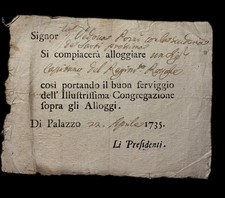 Signor
di Porta
Si compiacerà alloggiare un Sigr
Capitano del Regimto Reggio
così portando il buon serviggio
dell' Illustrissima Congregazione
sopra gli Alioggi.
Di Palazzo 22 Aprile 1735.
Li Presidenti.